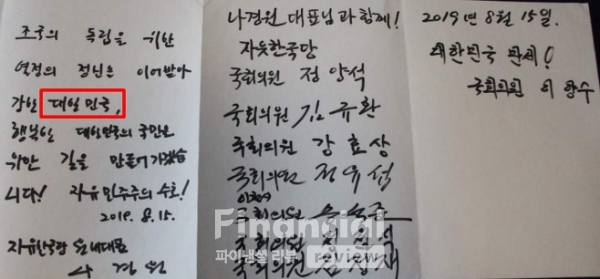 조국의 독립을 위한
열정의 정신은 이어받아
강한 대일민국,
행복한 대일민국의 국민을
위한 길을 만들어가겠습
니다! 자유민주주의 수호!
2019. 8. 15.
자유한국당 원내대표
나경원
나경원 대표님과 함께!
자유한국당
국회의원 정양석
국회의원 김규환
국회의원 강효상
국회의원 정유섭
국회의원 송석준
국회의원
국회의원
2019년 8월 15일.
대한민국 만세!
국회의원 이양수
Financial
파이낸셜 리뷰
review